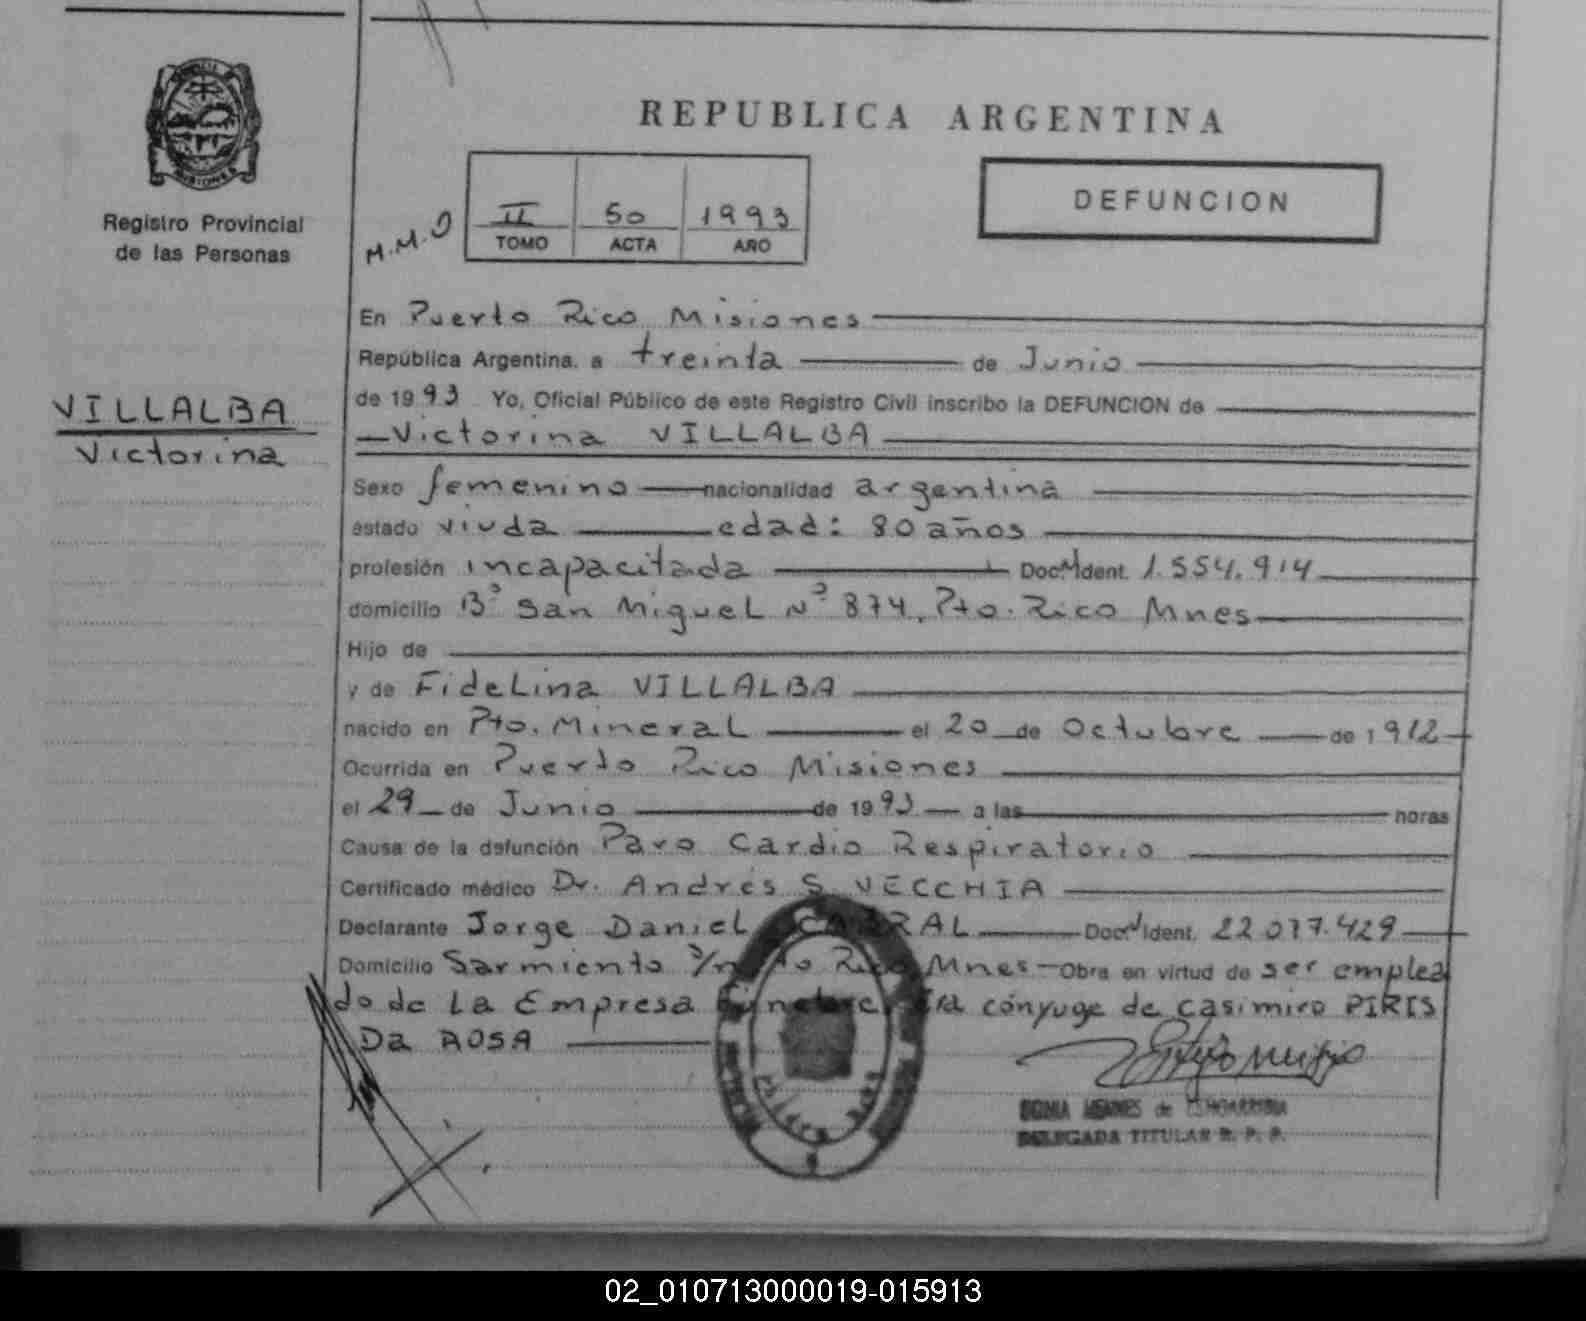 REPUBLICA ARGENTINA
MISIONES
Registro Provincial
de las Personas
DEFUNCION
M.M.O
II 50 1993
TOMO ACTA AÑO
VILLALBA
Victorina
En Puerto Rico Misiones
República Argentina, a treinta de Junio
de 1993 Yo, Oficial Público de este Registro Civil inscribo la DEFUNCION de
Victorina VILLALBA
Sexo femenino nacionalidad argentina
estado viuda edad: 80 años
profesión incapacitada Doc. Ident. 1.554.914
domicilio Bº San Miguel Nº 874, Pto. Rico Mnes
Hijo de
y de Fidelina VILLALBA
nacido en Pto. Mineral el 20 de Octubre de 1912
Ocurrida en Puerto Rico Misiones
el 29 de Junio de 1993 a las horas
Causa de la defunción Paro Cardio Respiratorio
Certificado médico Dr. Andrés S. VECCHIA
Declarante Jorge Daniel CABRAL Doc. Ident. 22.077.429
Domicilio Sarmiento s/n Pto Rico Mnes Obra en virtud de ser emplea
do de La Empresa Funebre. Era cónyuge de Casimiro PIRIS
Da ROSA
DELEGADA TITULAR R. P. P.
02_010713000019-015913